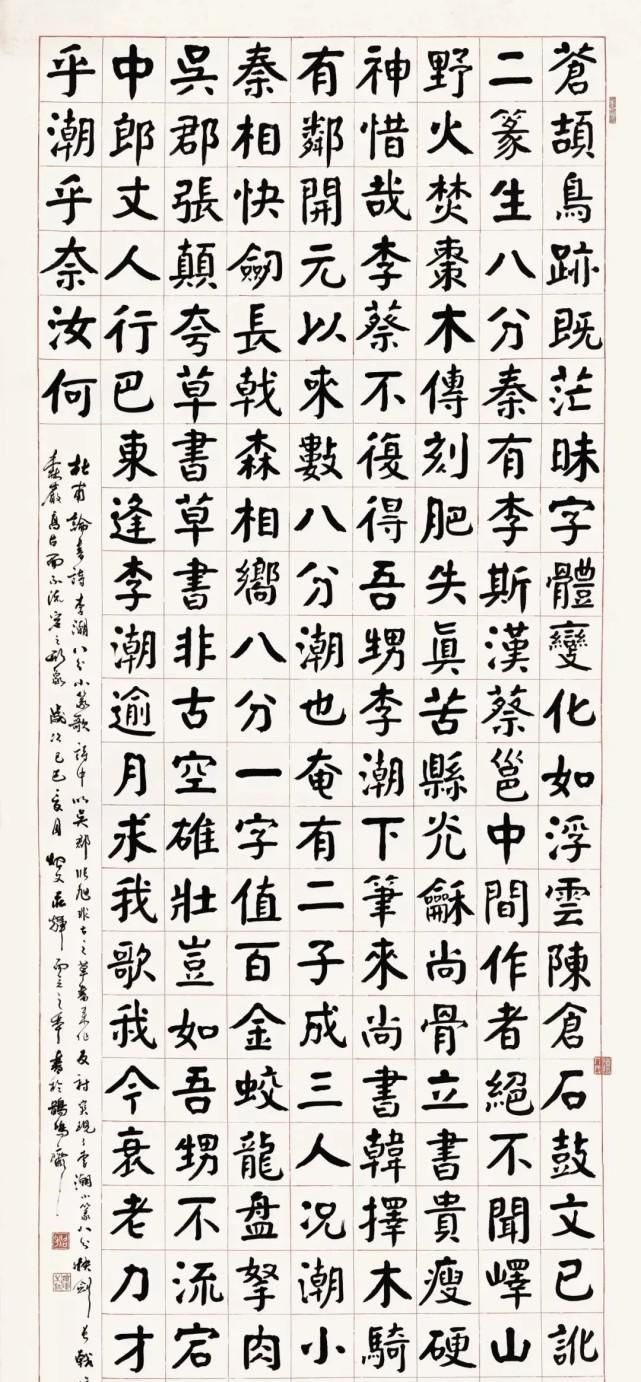 蒼頡鳥跡既茫昧字體變化如浮雲陳倉石鼓文已訛
二篆生八分秦有李斯漢蔡邕中間作者絕不聞嶧山
野火焚棗木傳刻肥失眞苦縣光龢尚骨立書貴瘦硬
神惜哉李蔡不復得吾甥李潮下筆來尚書韓擇木騎
有鄰開元以來數八分潮也奄有二子成三人況潮小
秦相快劒長戟森相嚮八分一字值百金蛟龍盤拏肉
吳郡張顛夸草書草書非古空雄壯豈如吾甥不流宕
中郎丈人行巴東逢李潮逾月求我歌我今衰老力才
乎潮乎奈汝何
杜甫論書詩李潮八分小篆歌詩中以吳郡張旭非古之草書來作反衬潮小篆八分快劍長戟
森嚴高古而不流宕之形象歲次己巳